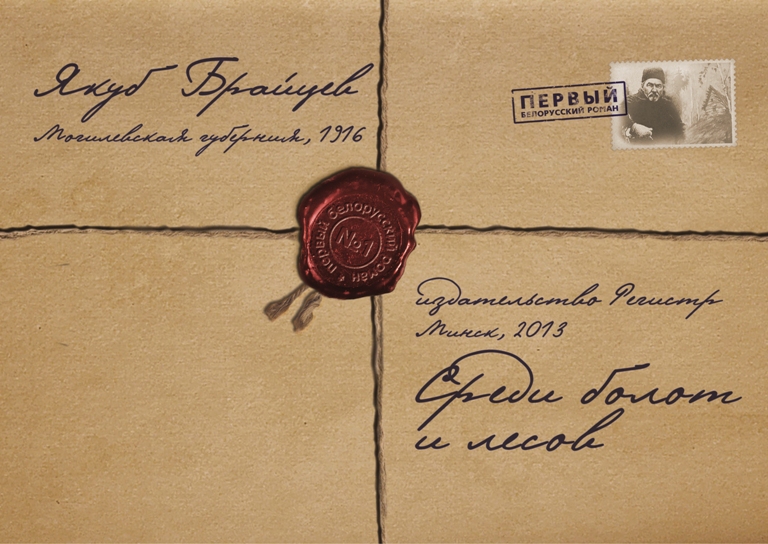 Якуб Брайцев
Могилевская губерния, 1916
ПЕРВЫЙ
БЕЛОРУССКИЙ РОМАН
первый белорусский роман
№1
издательство Регистр
Минск, 2013
Среди болот
и лесов